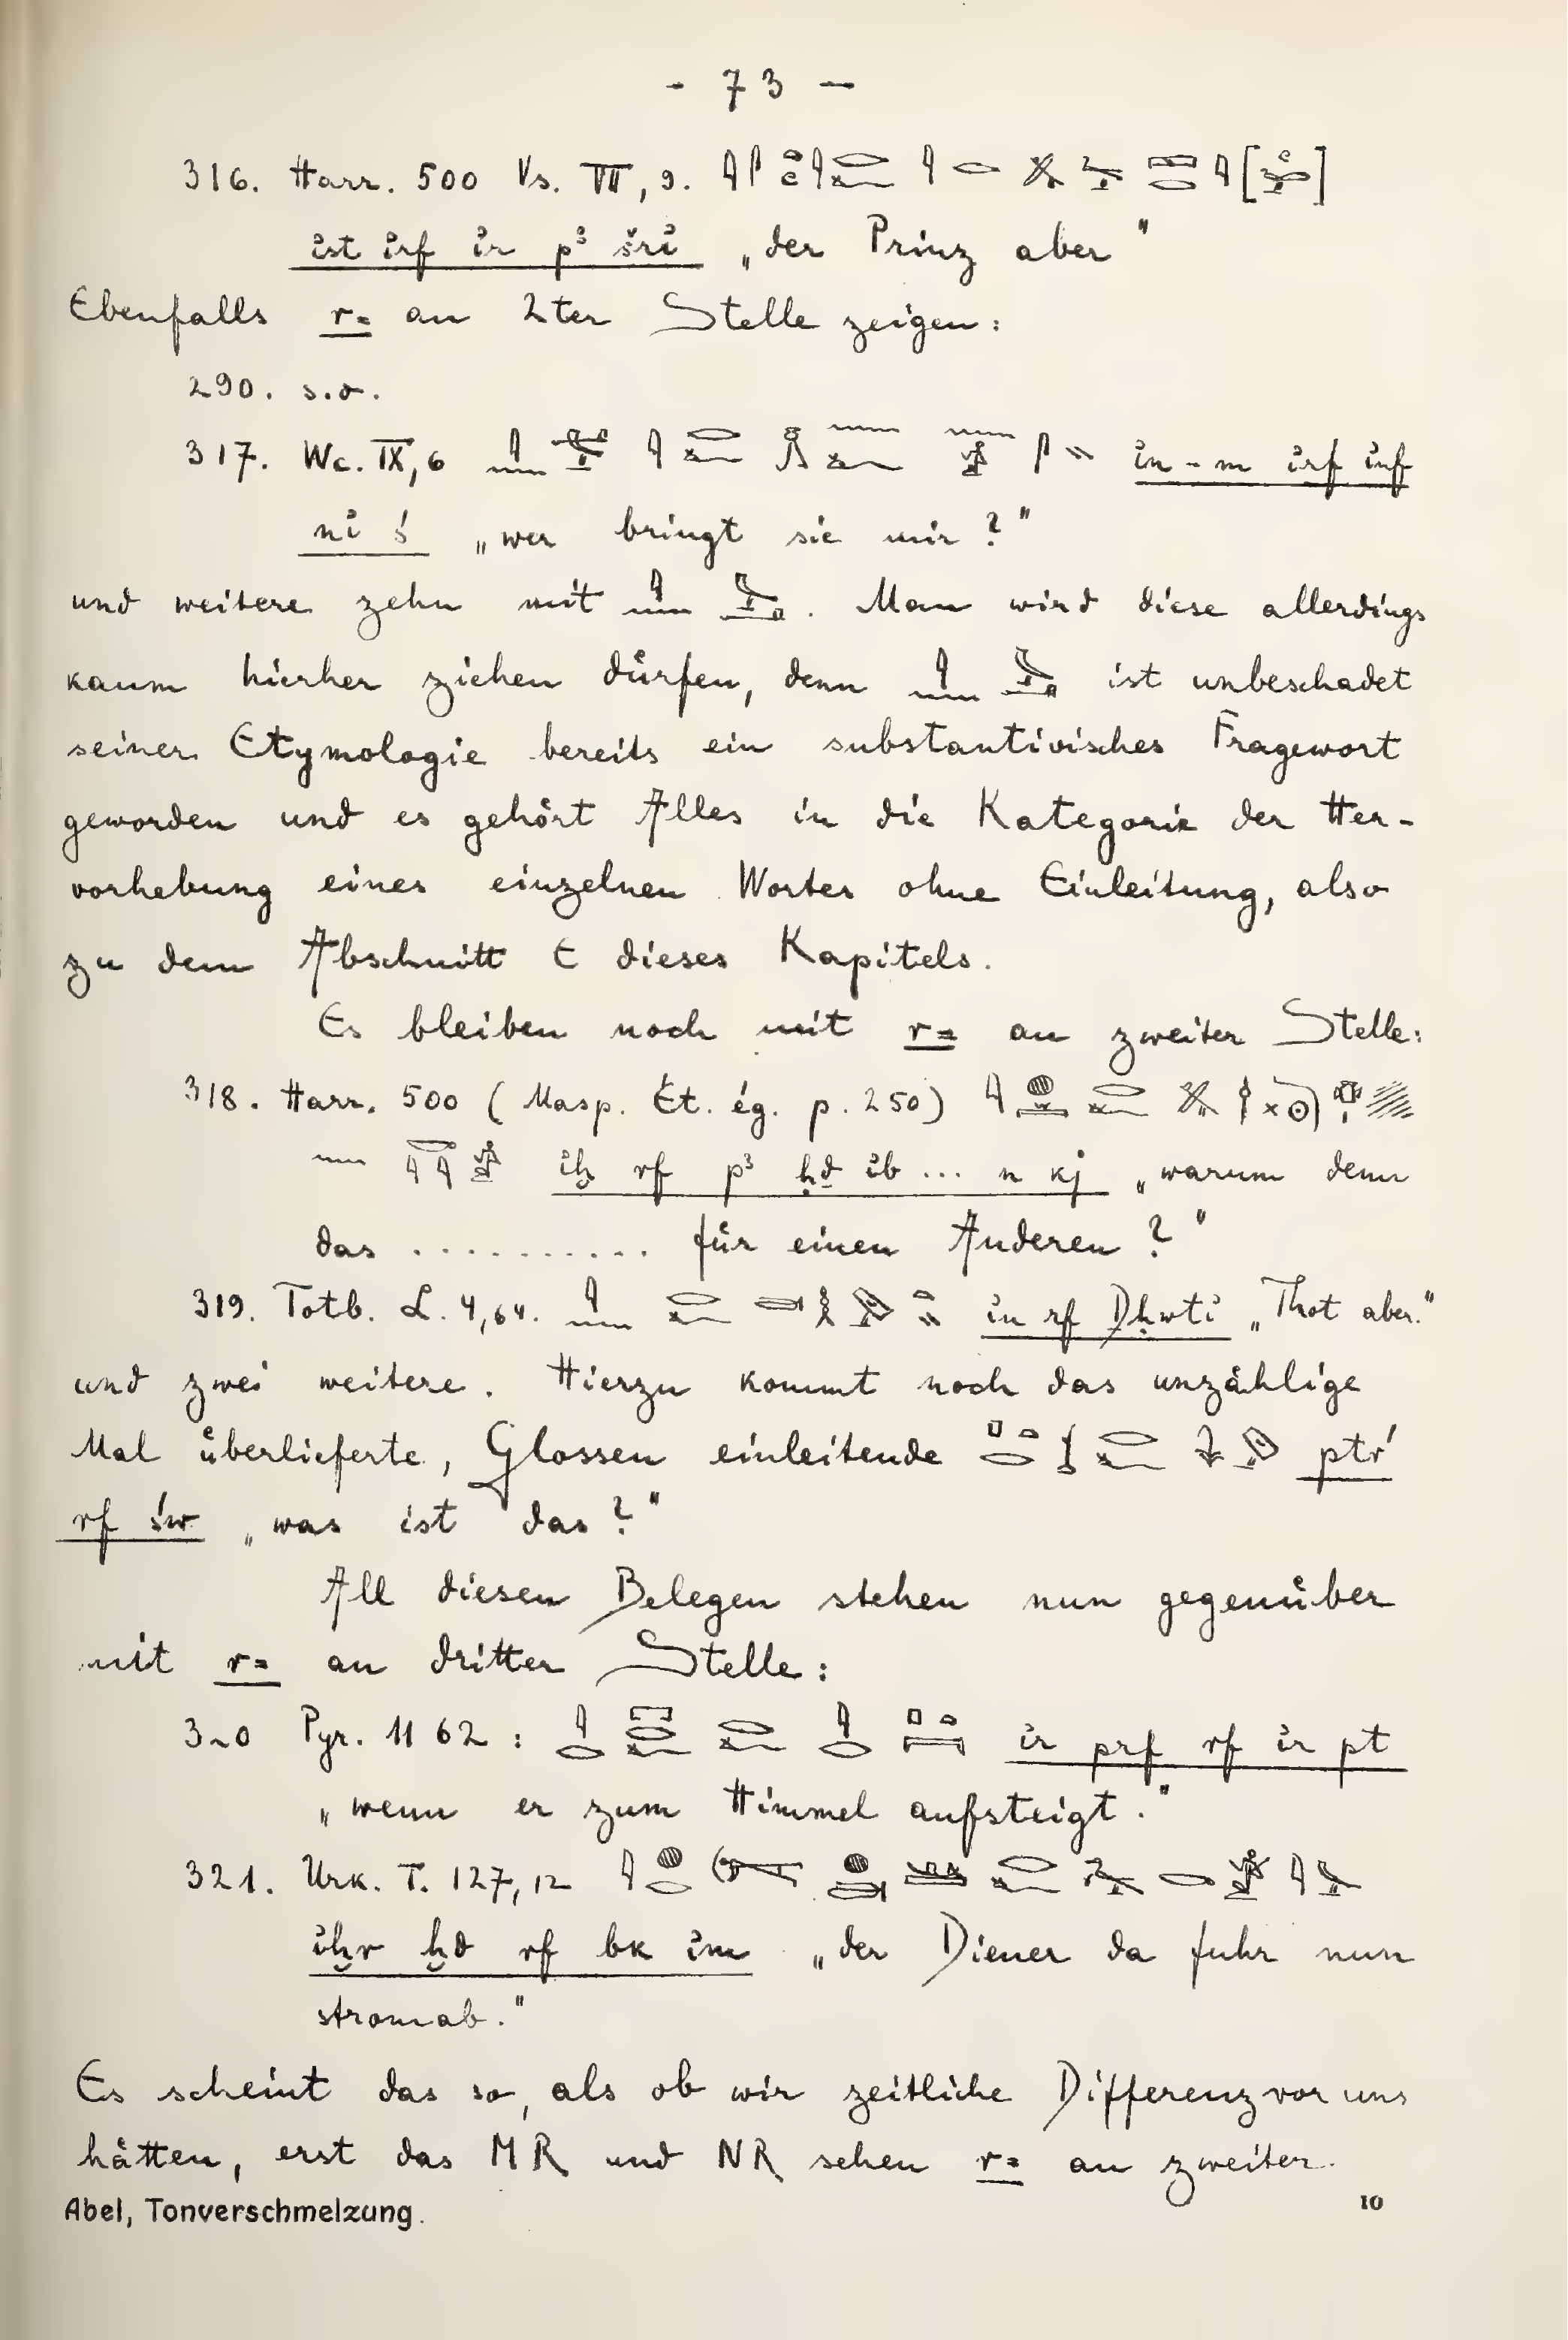 - 73 -
316. Harr. 500 Vs. VII, 9.
ist irf ir p³ šri „der Prinz aber"
Ebenfalls r= an 2ter Stelle zeigen:
290. s.o.
317. Wc. IX, 6 in-m irf inf
ni ś „wer bringt sie mir?"
und weitere zehn mit . Man wird diese allerdings
kaum hierher ziehen dürfen, denn ist unbeschadet
seiner Etymologie bereits ein substantivisches Fragewort
geworden und es gehört Alles in die Kategorie der Her-
vorhebung eines einzelnen Wortes ohne Einleitung, also
zu dem Abschnitt E dieses Kapitels.
Es bleiben noch mit r= an zweiter Stelle:
318. Harr. 500 (Masp. Ét. ég. p. 250)
iḫ rf p³ ḥḏ ib ... n kj „warum denn
das .......... für einen Anderen?"
319. Totb. L. 4,64. in rf Ḏḥwti „Thot aber."
und zwei weitere. Hierzu kommt noch das unzählige
Mal überlieferte, Glossen einleitende ptr
rf św „was ist das?"
All diesen Belegen stehen nun gegenüber
mit r= an dritter Stelle:
320 Pyr. 1162: ir prf rf ir pt
„wenn er zum Himmel aufsteigt."
321. Urk. I. 127,12
iḫr ḫd rf bk im „der Diener da fuhr nun
stromab."
Es scheint das so, als ob wir zeitliche Differenz vor uns
hätten, erst das MR und NR sehen r= an zweiter.
Abel, Tonverschmelzung. 10